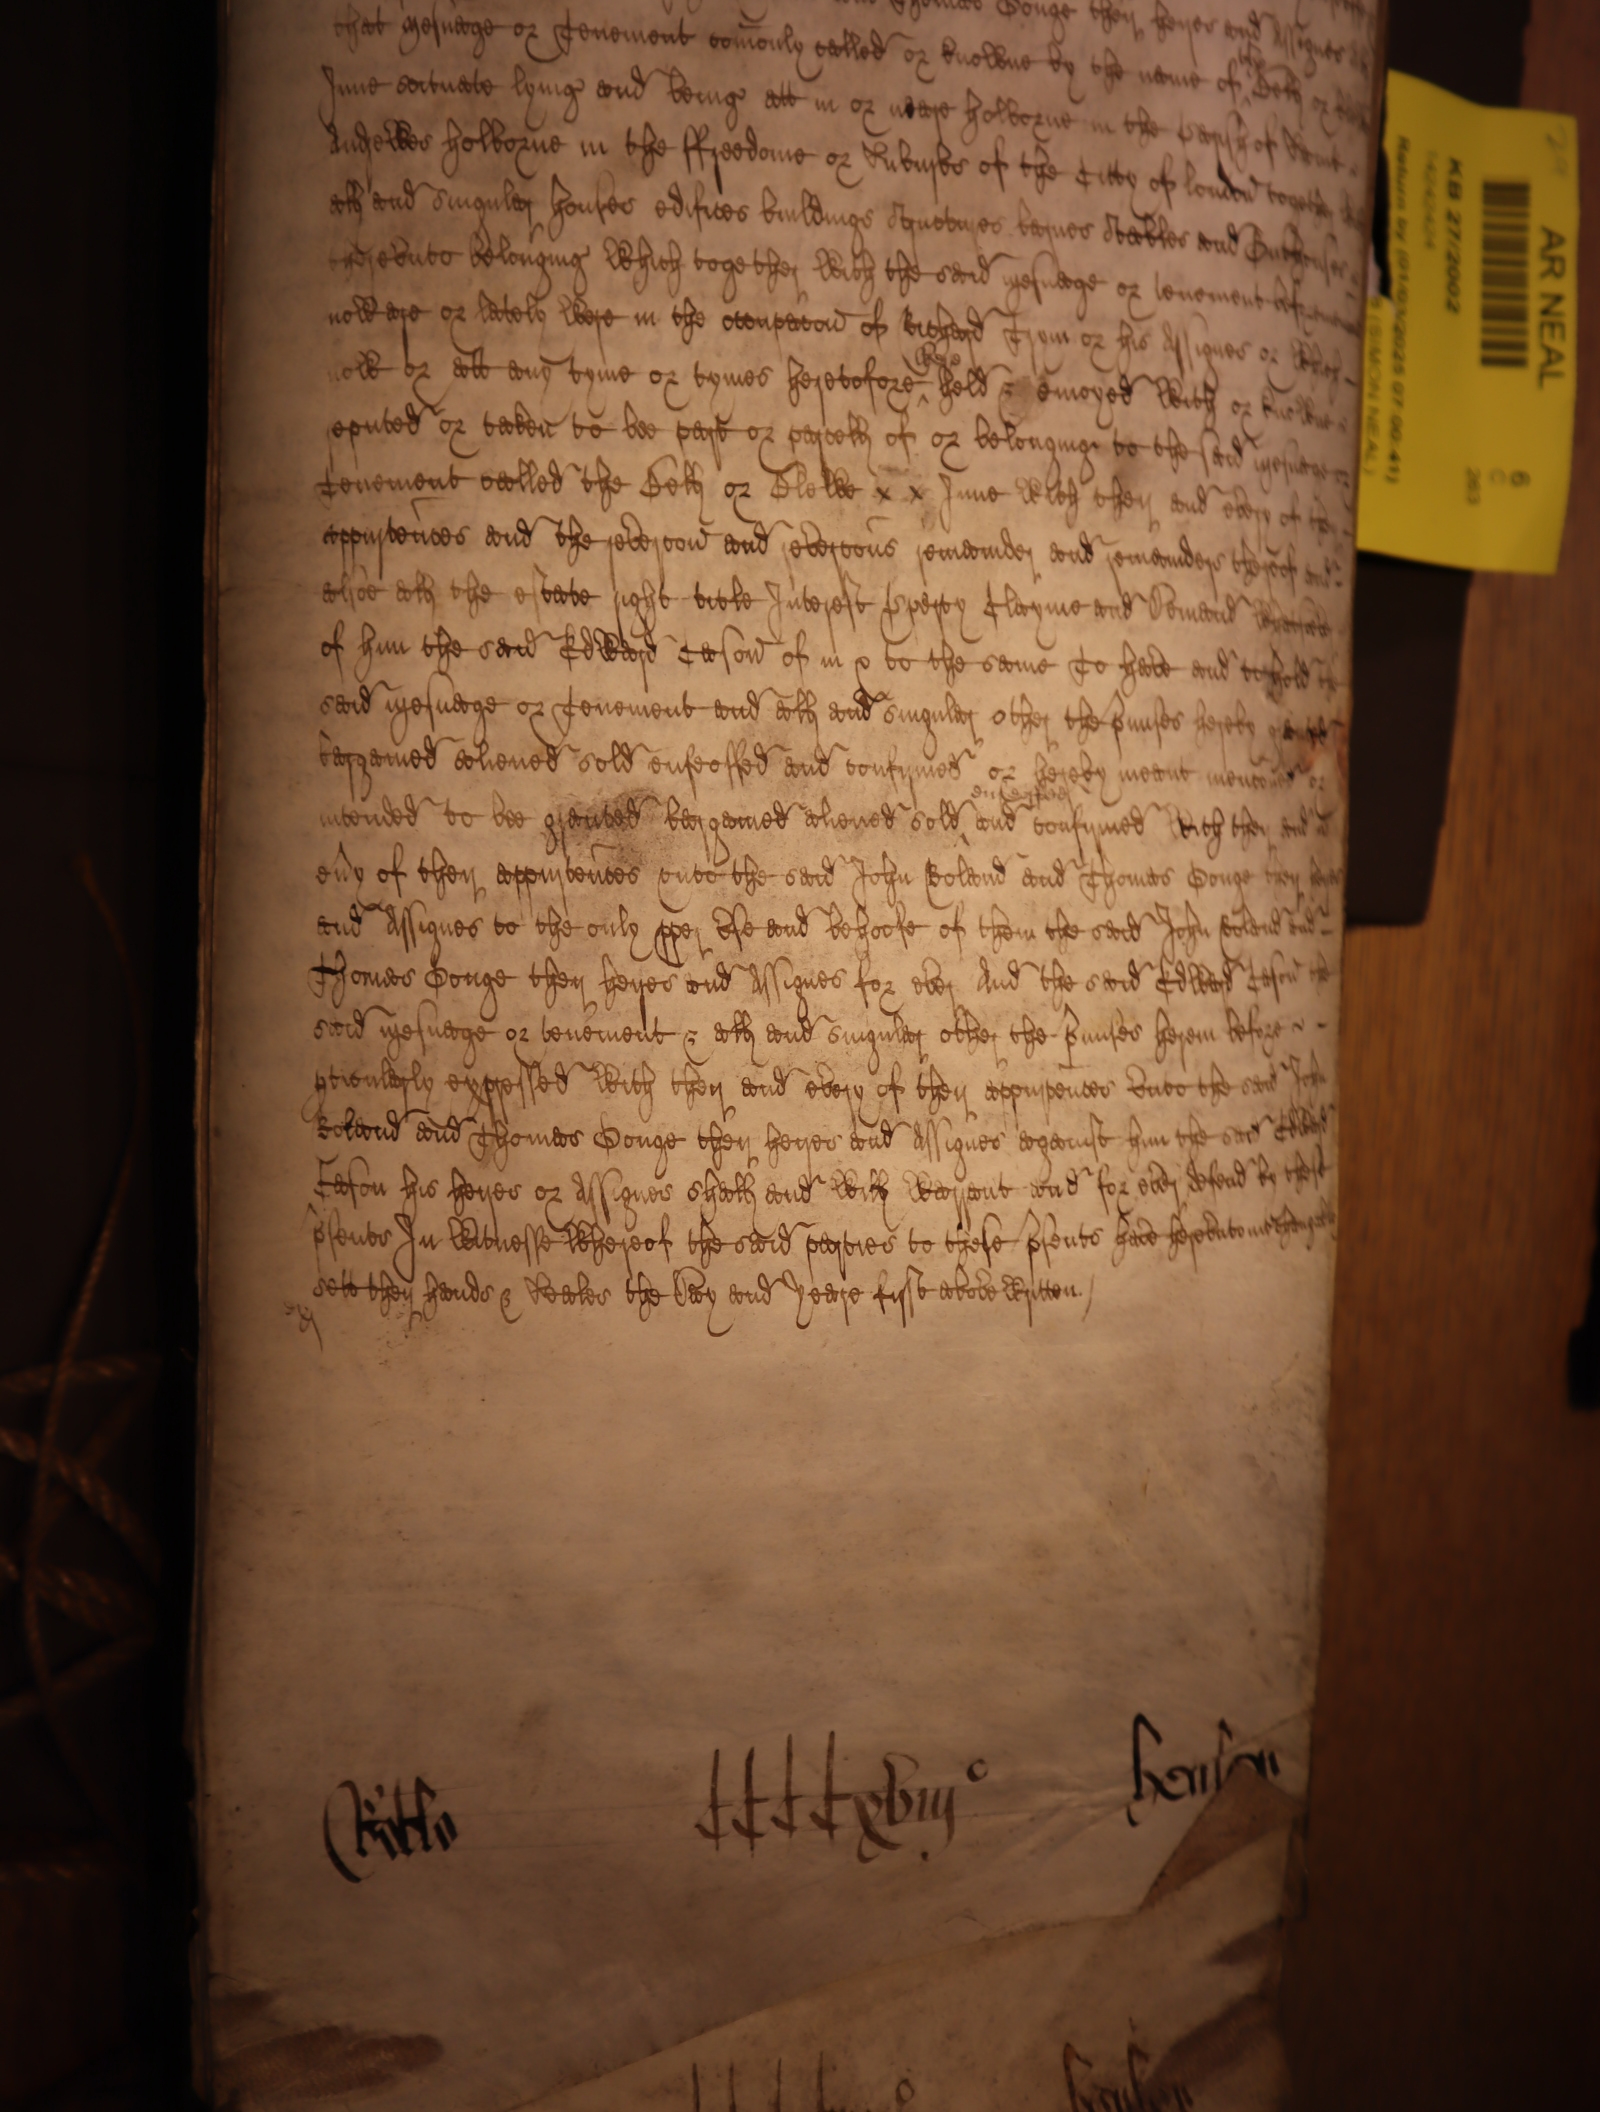 Thomas Gonge their heires and Assignes
that mesuage or Tenement com̄only called or knowne by the name of the Bell or
Inne scituate lying and being att in or neare Holborne in the parish of Saint
Andrewes Holborne in the ffreedome or Suburbs of the Citty of london together
all and singuler houses edifices buildings structures barnes stables and Outhouses
therevnto belonging Which together With the said mesuage or tenement
now are or lately Were in the occupacon of Richard Trym or his Assignes or Which
now or att any tyme or tymes heretofore were held & enioyed With or knowne
reputed or taken to bee part or parcell of or belonging to the said mesuage or
Tenement called the Bell or Blewe x x Inne With their and every of their
appurtēnces and the revercon and revercōns remainder and remainders thereof and
alsoe all the estate right title Interest ꝓperty Clayme and Demand Whatsoever
of him the said Edward Cason of in & to the same To have and to hold the
said mesuage or Tenement and all and singuler other the p̄mises hereby granted
bargained aliened sold enfeoffed and confirmed or hereby meant mencōned or
intended to bee granted bargained aliened sold enfeoffed and confirmed With their and
eūy of their appurtēnces vnto the said John Roland and Thomas Gonge their heires
and Assignes to the only ꝓper Vse and behoofe of them the said John Roland and
Thomas Gonge their heires and Assignes for ever And the said Edward Cason the
said mesuage or tenement & all and singuler other the p̄mises herein before
ꝑticularly expressed With their and every of their appurtēnces Vnto the said John
Roland and Thomas Gonge their heires and Assignes against him the said Edward
Cason his heires or Assignes shall and Will Warrant and for ever defend by these
p̄sents In Witnesse Whereof the said parties to these p̄sents have herevnto interchangeably
sett their hands & Seales the Day and yeare first above Written
xviijº
AR NEAL
KB 27/2002
14242424
Return by (01/01/2025 07:00:41)
(SIMON NEAL)
6
C
263